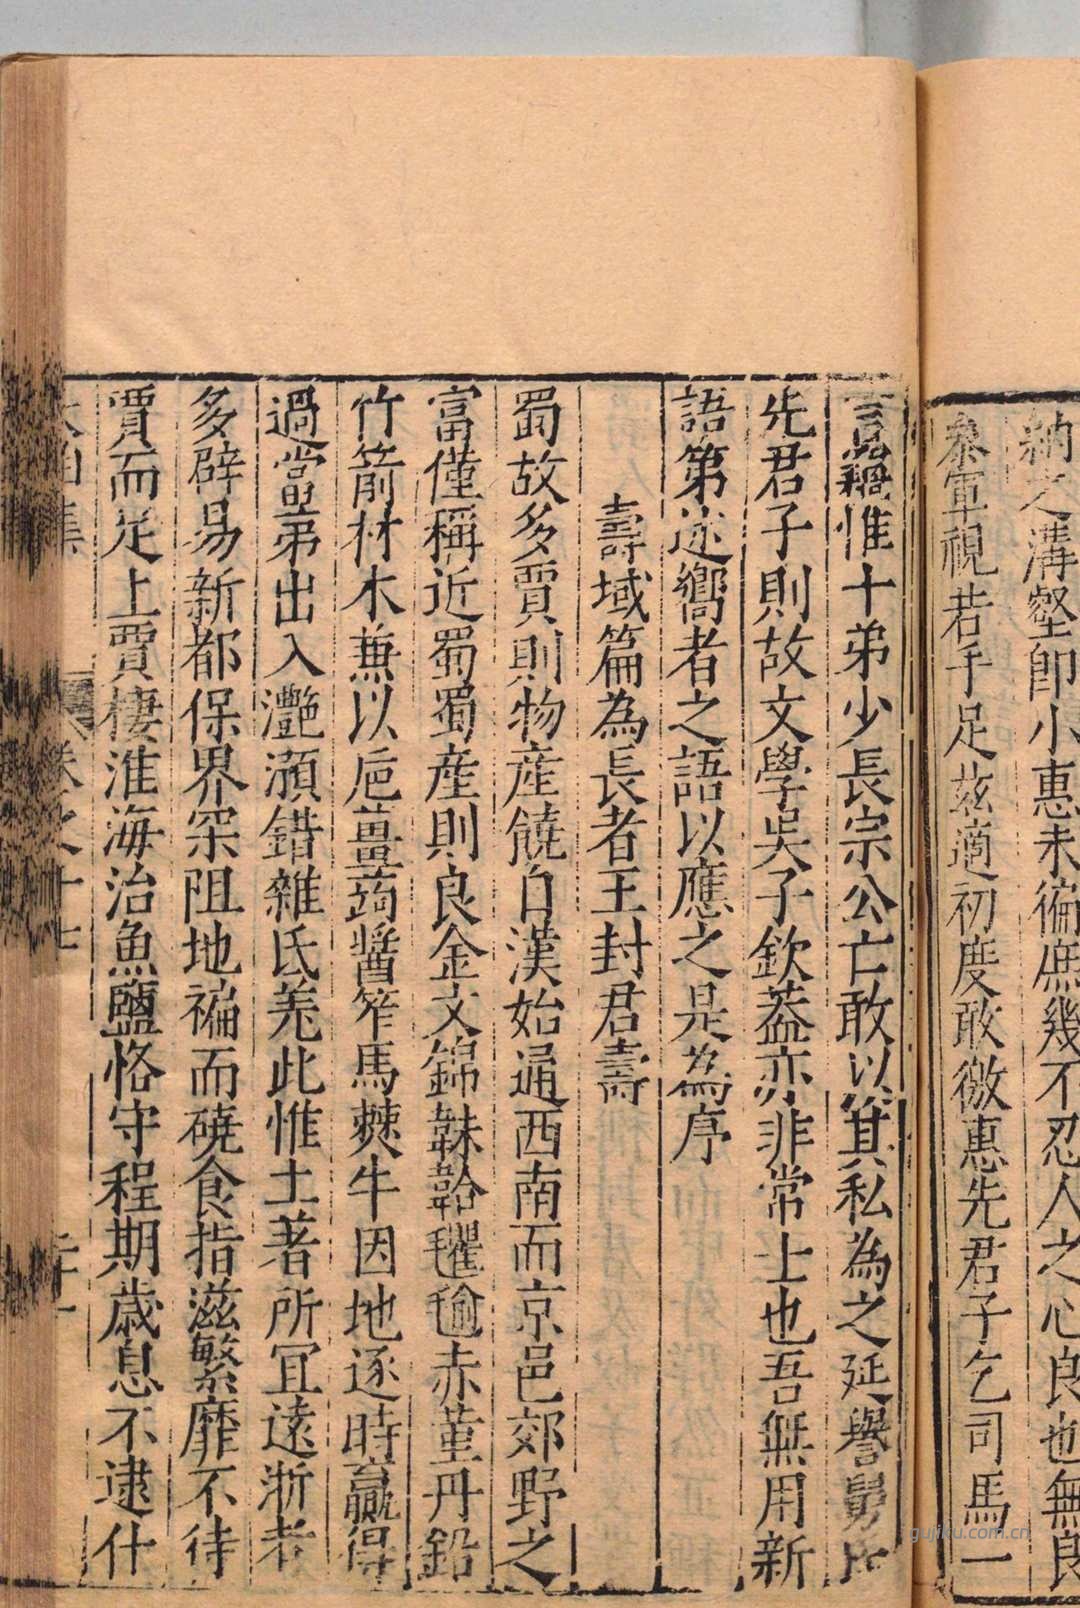 納之溝壑即小惠未徧庶幾不忍人之心良也無良
叅軍視若手足茲適初度敢徼惠先君子乞司馬一
言藉惟十弟少長宗公亡敢以其私為之延譽舅氏
先君子則故文學吳子欽葢亦非常士也吾無用新
語第述嚮者之語以應之是為序
壽域篇為長者王封君壽
蜀故多賈則物產饒自漢始通西南而京邑郊野之
富僅稱近蜀蜀產則良金文錦韎韐氍毹赤董丹鉛
竹箭材木蕉以巵薑蒟醬笮馬僰牛因地逐時贏得
過當第出入灩澦錯雜氐羌此惟土著所宜遠游者
多辟易新都保界罙阻地褊而磽食指滋繁靡不待
賈而足上賈棲淮海治魚鹽恪守程期歲息不逮什
太函集
卷之十七
二十一
gujiku.com.cn